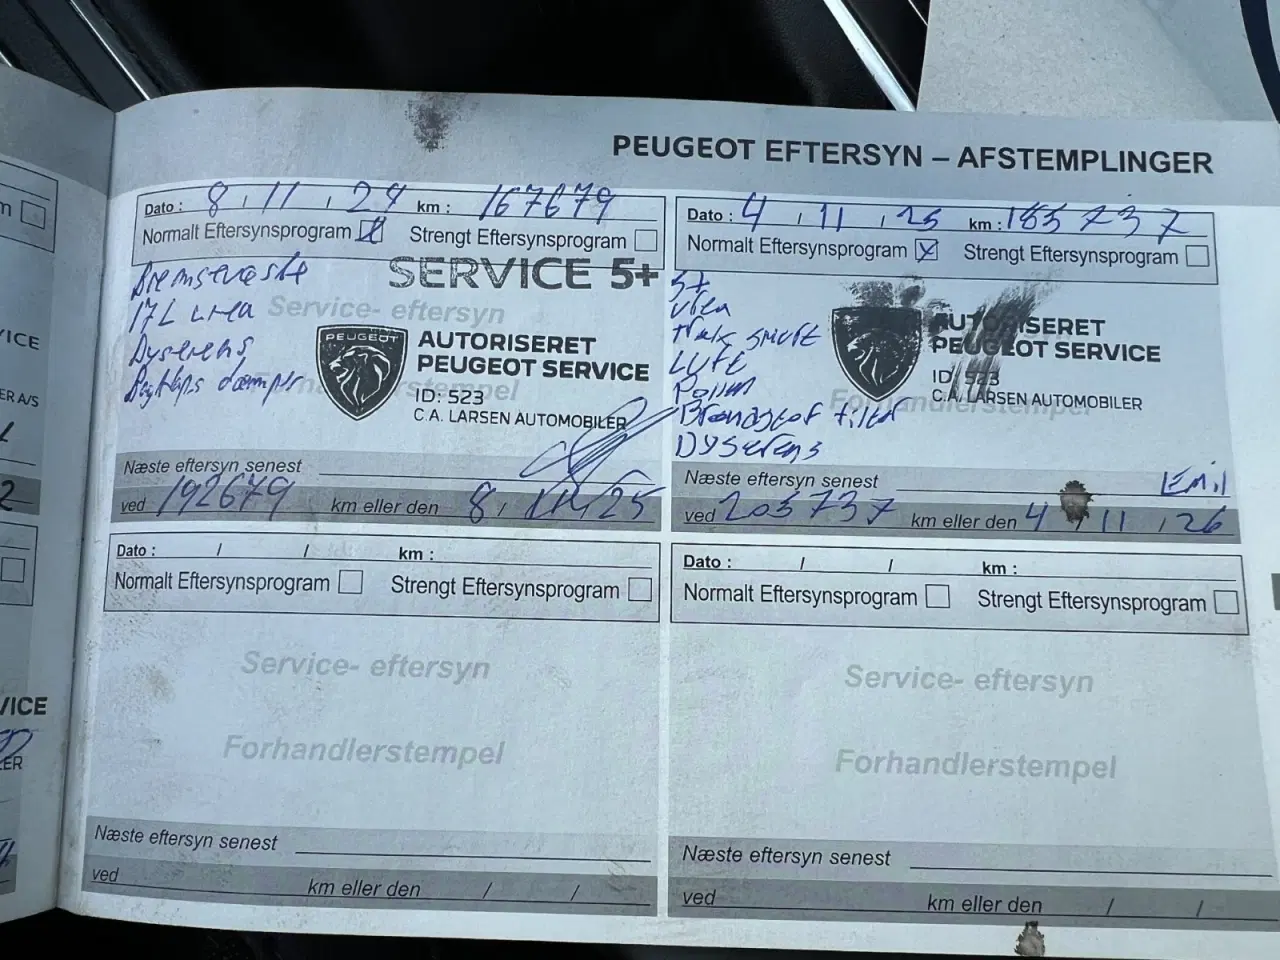 PEUGEOT EFTERSYN – AFSTEMPLINGER
Dato : 8 / 11 / 24 km : 167679
Normalt Eftersynsprogram Strengt Eftersynsprogram
SERVICE 5+
Bremsevæske
17L urea
Dyserens
Service- eftersyn
Forhandlerstempel
PEUGEOT
AUTORISERET
PEUGEOT SERVICE
ID: 523
C.A. LARSEN AUTOMOBILER
Næste eftersyn senest
ved 192679 km eller den 8 / 11 / 25
Dato : 4 / 11 / 25 km : 185737
Normalt Eftersynsprogram x Strengt Eftersynsprogram
5+
Urea
Luft
Pollen
Brændstof filter
Dyserens
AUTORISERET
PEUGEOT SERVICE
ID: 523
C.A. LARSEN AUTOMOBILER
Forhandlerstempel
Næste eftersyn senest Emil
ved 203737 km eller den 4 / 11 / 26
Dato : / / km :
Normalt Eftersynsprogram Strengt Eftersynsprogram
Service- eftersyn
Forhandlerstempel
Næste eftersyn senest
ved km eller den / /
Dato : / / km :
Normalt Eftersynsprogram Strengt Eftersynsprogram
Service- eftersyn
Forhandlerstempel
Næste eftersyn senest
ved km eller den / /